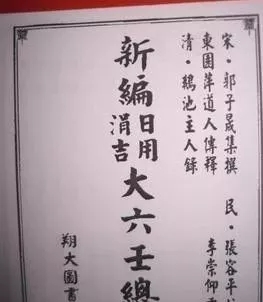 宋·郭子晟集撰
東園萍道人傳釋
清·鵝池主人錄
民·張容平
李崇仰
新編日用涓吉大六壬總
翔大圖書